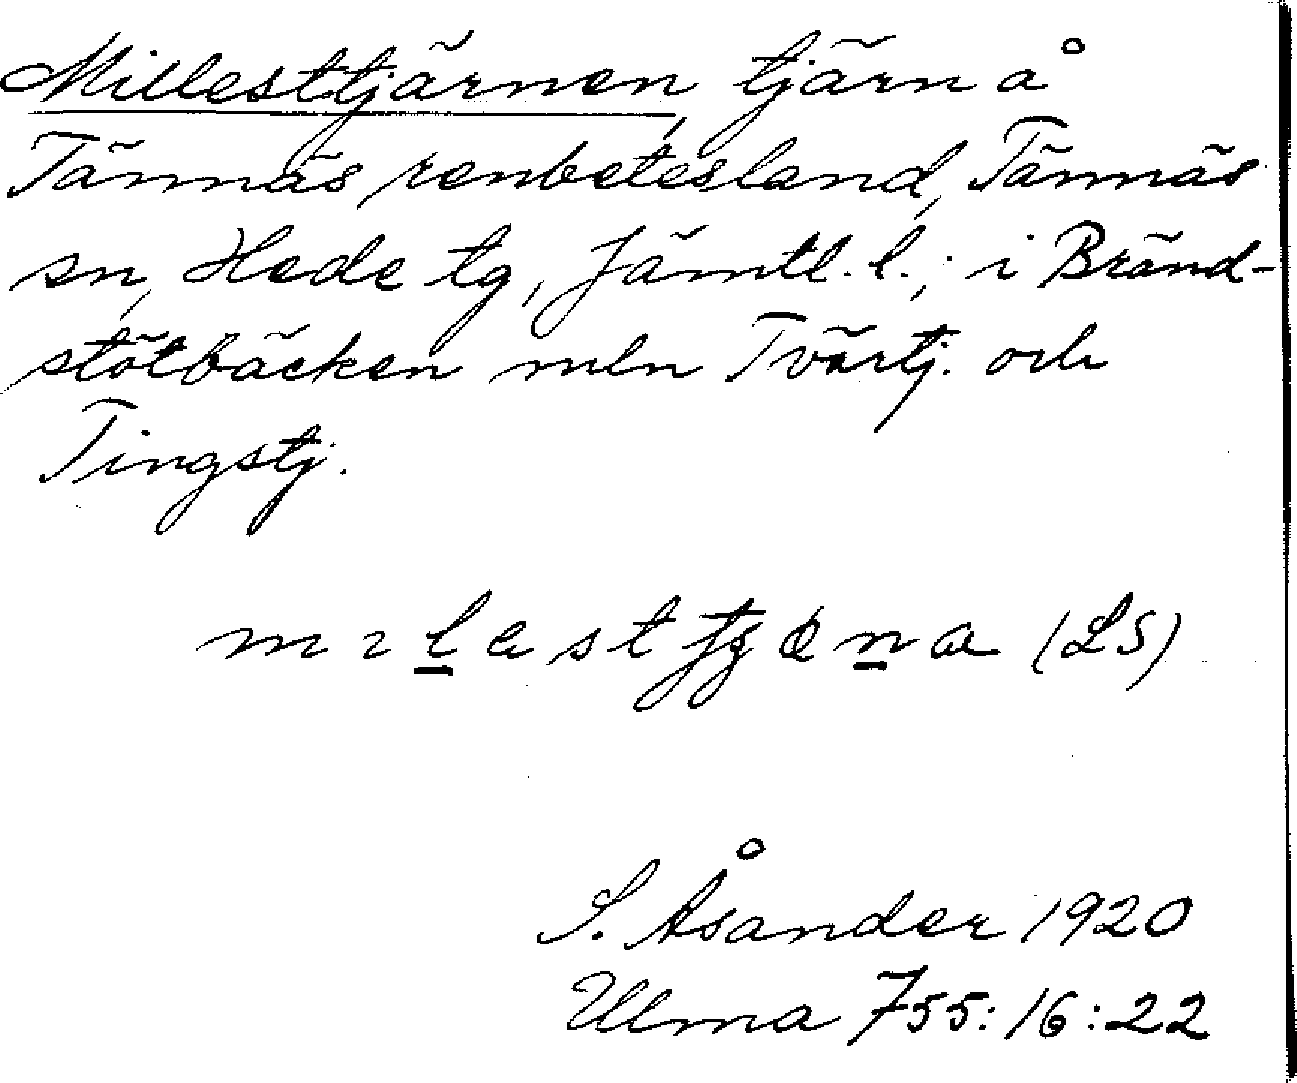 Millesttjärnen, tjärn å
Tännäs renbetesland, Tännäs
sn, Hede tg, Jämtl. l.; i Bränd-
stötbäcken mln Tvärtj. och
Tingstj.
(LS)
S. Åsander 1920
Ulma 755:16:22